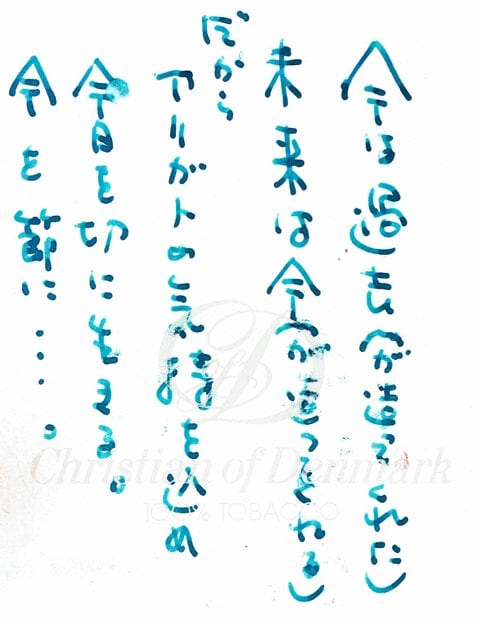 今は過去(が造ってくれた)
未来は今(が造ってくれる)
だから
アリガトの気持を込め
今日を切に生きる。
今を節に....。
Christian of Denmark
100% TOBACCO